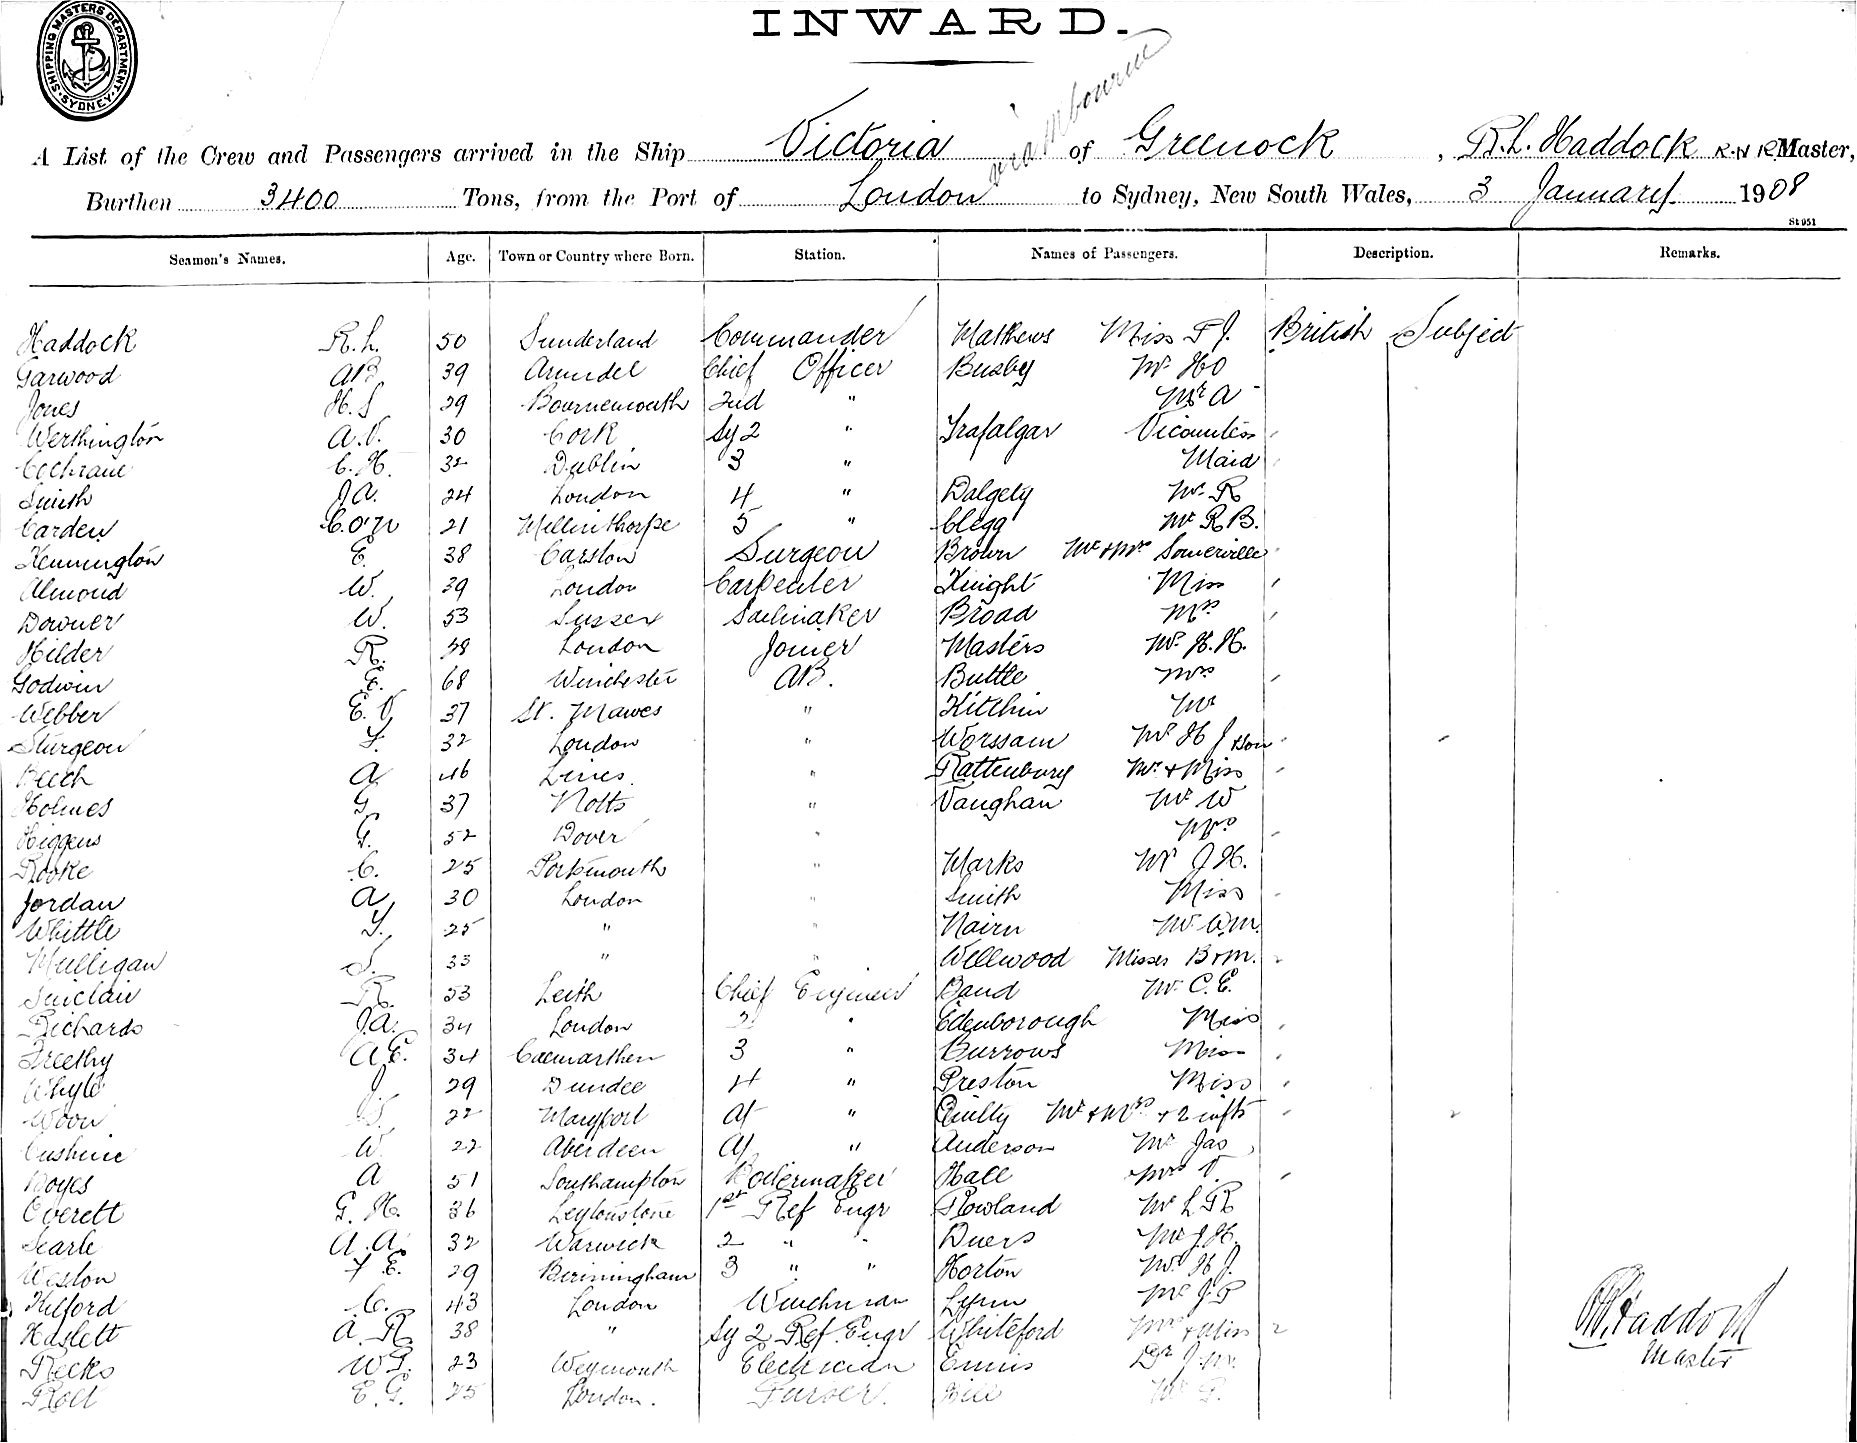 SHIPPING MASTERS DEPARTMENT. SYDNEY
INWARD.
via Mbourne
A List of the Crew and Passengers arrived in the Ship Victoria of Greenock, R.L. Haddock R.N.R. Master,
Burthen 3400 Tons, from the Port of London to Sydney, New South Wales, 3 January 1908
St 951
Seamen's Names. Age. Town or Country where Born. Station. Names of Passengers. Description. Remarks.
Haddock R.L. 50 Sunderland Commander Mathews Miss F J. British Subject
Garwood AB 39 Arundel Chief Officer Busby Mr HO
Jones H.S 29 Bournemouth 2nd " Mr A
Werthington A.V. 30 Cork Sy 2 " Trafalgar Vicountess
Cochrane C.H. 32 Dublin 3 " Maid
Smith J.A. 24 London 4 " Dalgety Mr R
Carden C.O'N 21 Millinthorpe 5 " Clegg Mr R B.
Kennington E. 38 Carston Surgeon Brown Mr & Mrs Somerville
Almond W. 39 London Carpenter Knight Miss
Downer W. 53 Sussex Sailmaker Broad Mrs
Hilder R. London Joiner Masters Mr H.H.
Godwin E. 68 Winchester AB. Buttle Mrs
Webber E.V. 37 St. Mawes " Kitchin Mr
Sturgeon 32 London " Worssam Mr H J
Beech A 46 Lincs. " Rattenbury Mr & Miss
Holmes G. 37 Notts " Vaughan Mr W
Higgens G. 52 Dover " Mrs
Rooke C. 25 Portsmouth " Marks Mr J.H.
Jordan A 30 London " Smith Miss
Whittle 25 " " Nairn Mr W.M.
Mulligan S. 33 " " Wellwood Misses B & M.
Sinclair R. 53 Leith Chief Engineer Band Mr C.E.
Richards J.A. 34 London 2 " Edenborough Miss
Freethy A E. 34 Caemarthen 3 " Burrows Miss
Whyte J. 29 Dundee 4 " Preston Miss
Woon 22 Maryport " Quilty Mr & Mrs & 2 infts
Cushnie W. 22 Aberdeen " Anderson Mr Jas
Boyes A 51 Southampton Boilermaker Hall Mrs V.
Everett G.H. 36 Leytonstone 1st Ref Engr Rowland Mr L R
Searle A.A. 32 Warwick 2 " " Duers Mr J.H.
Weston F E. 29 Birmingham 3 " " Horton Mr H J.
Kilford C. 43 London Winchman Lynn Mr J.
Haslett A.R. 38 " Sy 2 Ref. Engr Whiteford Mrs & Miss
Recks W 23 Weymouth Electrician Ennis Dr J.
Rolt E.G. 25 London. Purser. Bill Mr
R L Haddock
Master